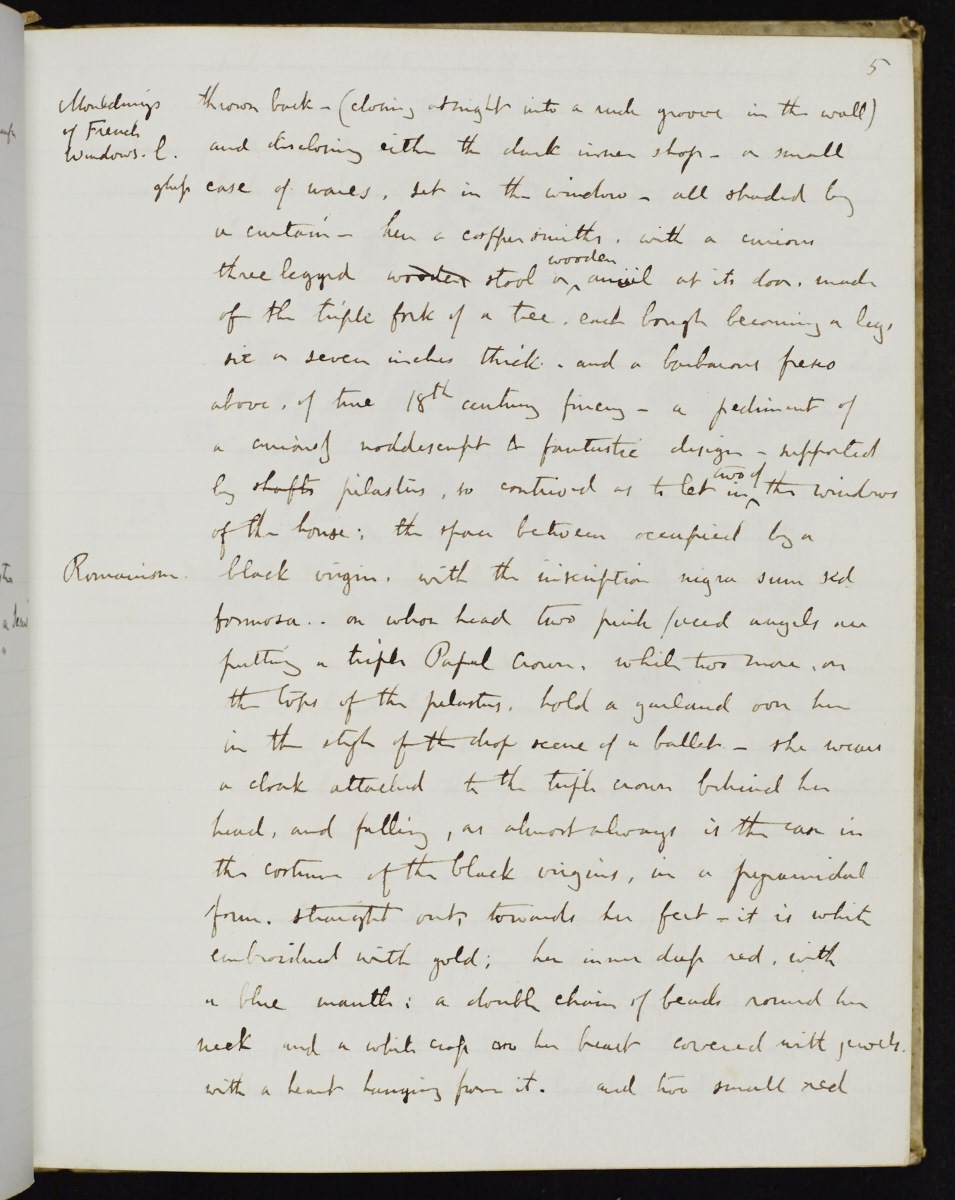 5
Mouldings
of French
Windows. C.
thrown back - (closing at night into a groove in the wall)
and disclosing either the dark inner shop - or small
case of wares, set in the window - all shaded by
a curtain - here a coppersmiths, with a curious
three legged wooden stool or wooden anvil at its door, made
of the triple fork of a tree, each bough becoming a leg,
six or seven inches thick - and a barbarous fresco
above, of true 18th century finery - a pediment of
a curiously noddescript & fantastic design - supported
by shafts pilasters, so contrived as to let in two of the windows
of the house; the space between occupied by a
Romanism.
black virgin, with the inscription nigra sum sed
formosa.. on whose head two pink faced angels are
putting a triple Papal Crown, while two more, on
the tops of the pilasters, hold a garland over her
in the style of the drop scene of a ballet - she wears
a cloak attached to the triple crown behind her
head, and falling, as almost always is the case in
the costume of the black virgins, in a pyramidal
form, straight out, towards her feet - it is white
embroidered with gold; her inner deep red, with
a blue mantle: a double chain of beads round her
neck and a white on her breast covered with jewels.
with a heart hanging from it. and two small red